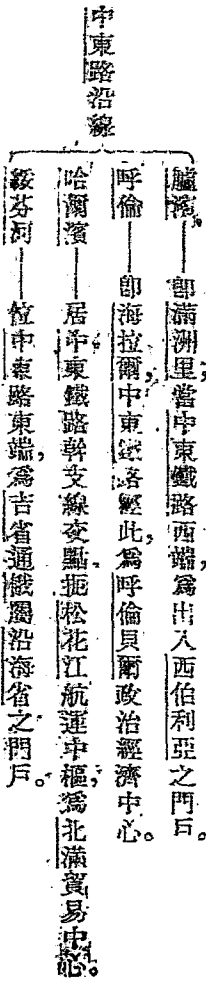 中東路沿線
臚濱——卽滿洲里，當中東鐵路西端，爲出入西伯利亞之門戶。
呼倫——卽海拉爾，中東鐵路經此，爲呼倫貝爾政治經濟中心。
哈爾濱——居中東鐵路幹支線交點，扼松花江航運中樞，爲北滿貿易中心。
綏芬河——位中東路東端，爲吉省通俄屬沿海省之門戶。